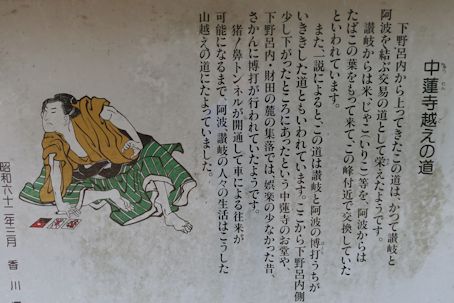 中蓮寺越えの道
下野呂内から上ってきたこの道は、かつて讃岐と
阿波を結ぶ交易の道として栄えたようです。
讃岐からは米・じゃこ(いりこ)等を、阿波からは
たばこの葉をもって来てこの峰付近で交換していた
といわれています。
また、一説によると、この道は讃岐と阿波の博打うちが
いききした道ともいわれています。ここから下野呂内側へ
少し下がったところにあったという中蓮寺のお堂や、
下野呂内・財田の麓の集落では、娯楽の少なかった昔、
さかんに博打が行われていたようです。
猪ノ鼻トンネルが開通して車による往来が
可能になるまで、阿波、讃岐の人々の生活はこうした
山越えの道にたよっていました。
昭和六十二年三月 香川